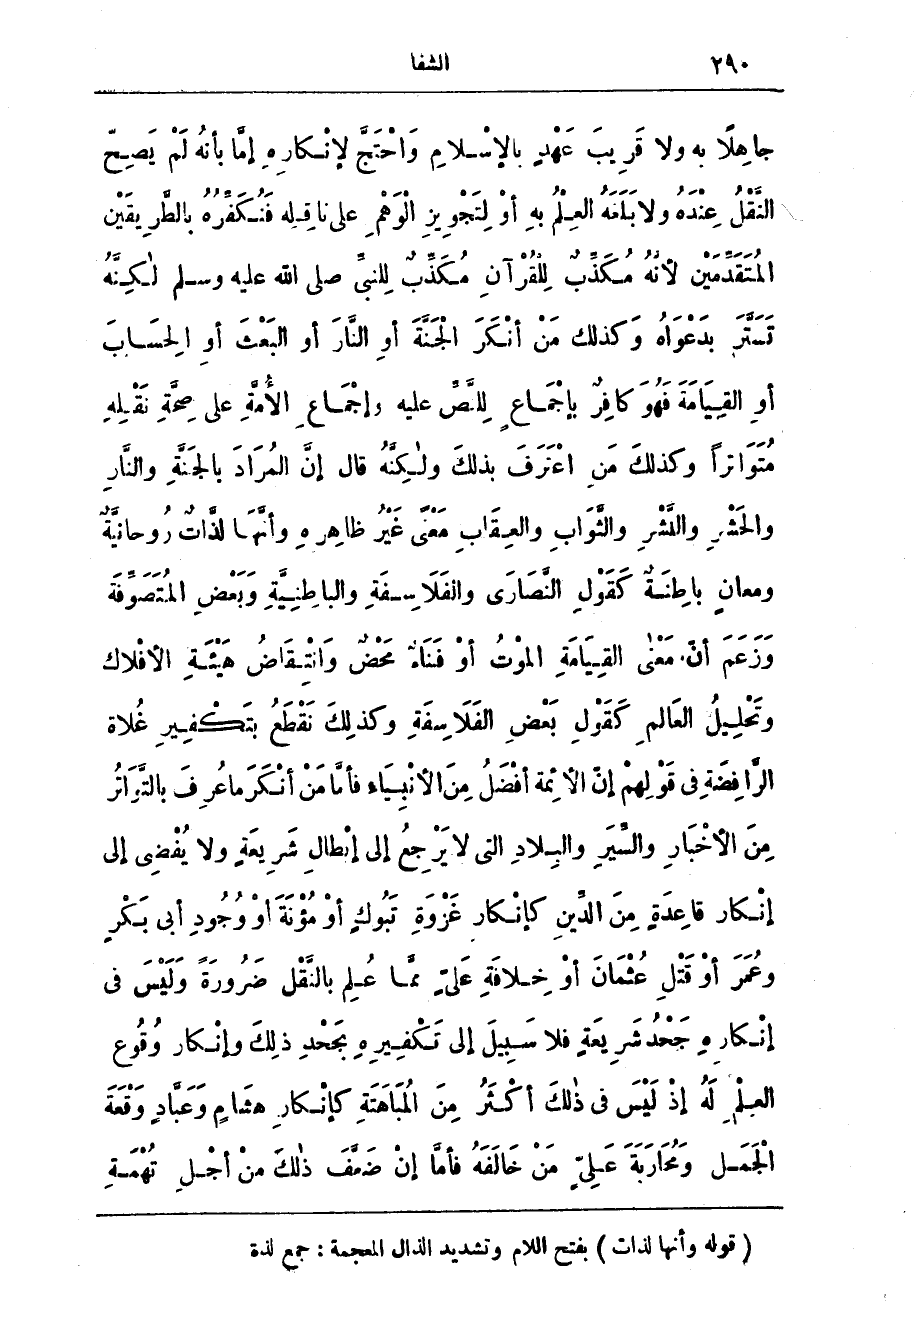 ٢٩٠ الشفا
جاهِلًا به ولا قَرِيبَ عَهْدٍ بالإسْلامِ وَاحْتَجَّ لإنْكارِهِ إمَّا بأنهُ لَمْ يَصِحّ
النَّقْلُ عِنْدَهُ ولا بَلَغَهُ العِلْمُ بهِ أوْ لِتَجْوِيزِ الْوَهْمِ على ناقِلِهِ فَنُكَفِّرُهُ بالطَّرِيقَيْنِ
المُتَقَدِّمَيْنِ لأنهُ مُكَذِّبٌ لِلْقُرْآنِ مُكَذِّبٌ لِلنبيِّ صلى الله عليه وسلم لٰكِنَّهُ
تَسَتَّرَ بِدَعْوَاهُ وَكذلك مَنْ أنْكَرَ الْجَنَّةَ أوِ النَّارَ أو البَعْثَ أوِ الحِسَابَ
أوِ القِيَامَةَ فَهُوَ كافِرٌ بإجْمَاعٍ لِلنَّصِّ عليه وإجْمَاعِ الأُمَّةِ على صِحَّةِ نَقْلِهِ
مُتَوَاتِراً وكذلكَ مَنِ اعْتَرَفَ بذلكَ ولٰكِنَّهُ قال إنَّ المُرَادَ بالجَنَّةِ والنَّارِ
والحَشْرِ والنَّشْرِ والثَّوَابِ والعِقَابِ مَعْنًى غَيْرُ ظاهِرِهِ وأنَّهَا لذَّاتٌ رُوحانِيَّةٌ
ومعانٍ باطِنَةٌ كَقَوْلِ النَّصَارَى والفَلَاسِفَةِ والباطِنِيَّةِ وَبَعْضِ المُتَصَوِّفَةِ
وَزَعَمَ أنّ مَعْنٰى القِيَامَةِ الموْتُ أوْ فَنَاءٌ مَحْضٌ وَانْتِقَاضُ هَيْئَةِ الأفْلاكِ
وتَحْلِيلُ العَالمِ كَقَوْلِ بَعْضِ الفَلَاسِفَةِ وكذلِكَ نَقْطَعُ بِتَكْفِيرِ غُلاةِ
الرَّافِضَةِ فى قَوْلِهِمْ إنّ الأئِمّةَ أفْضَلُ مِنَ الأنْبِيَاءِ فأمَّا مَنْ أنْكَرَ ما عُرِفَ بالتَّوَاتُرِ
مِنَ الأخْبَارِ والسِّيَرِ والبِلادِ التى لا يَرْجِعُ إلى إبْطالِ شَرِيعَةٍ ولا يُفْضِى إلى
إنْكارِ قاعِدَةٍ مِنَ الدِّينِ كإنْكارِ غَزْوَةِ تَبُوكَ أوْ مُؤْتَةَ أوْ وُجُودِ أبى بَكْرٍ
وعُمَرَ أوْ قَتْلِ عُثْمَانَ أوْ خِلافَةِ عَلِيّ ممَّا عُلِمَ بالنَّقْلِ ضَرُورَةً وَلَيْسَ فى
إنْكارِهِ جَحْدُ شَرِيعَةٍ فلا سَبِيلَ إلى تَكْفِيرِهِ بِجَحْدِ ذٰلِكَ وإنْكارِ وُقُوعِ
العِلْمِ لَهُ إذْ لَيْسَ فى ذٰلكَ أكْثَرُ مِنَ المُبَاهَتَةِ كإنْكارِ هشامٍ وَعَبَّادٍ وَقْعَةَ
الْجَمَلِ وَمُحَارَبَةَ عَلِيّ مَنْ خَالَفَهُ فأمَّا إنْ ضَعَّفَ ذٰلكَ مِنْ أجْلِ تُهْمَةِ
( قوله وأنها لذات ) بفتح اللام وتشديد الذال المعجمة : جمع لذة